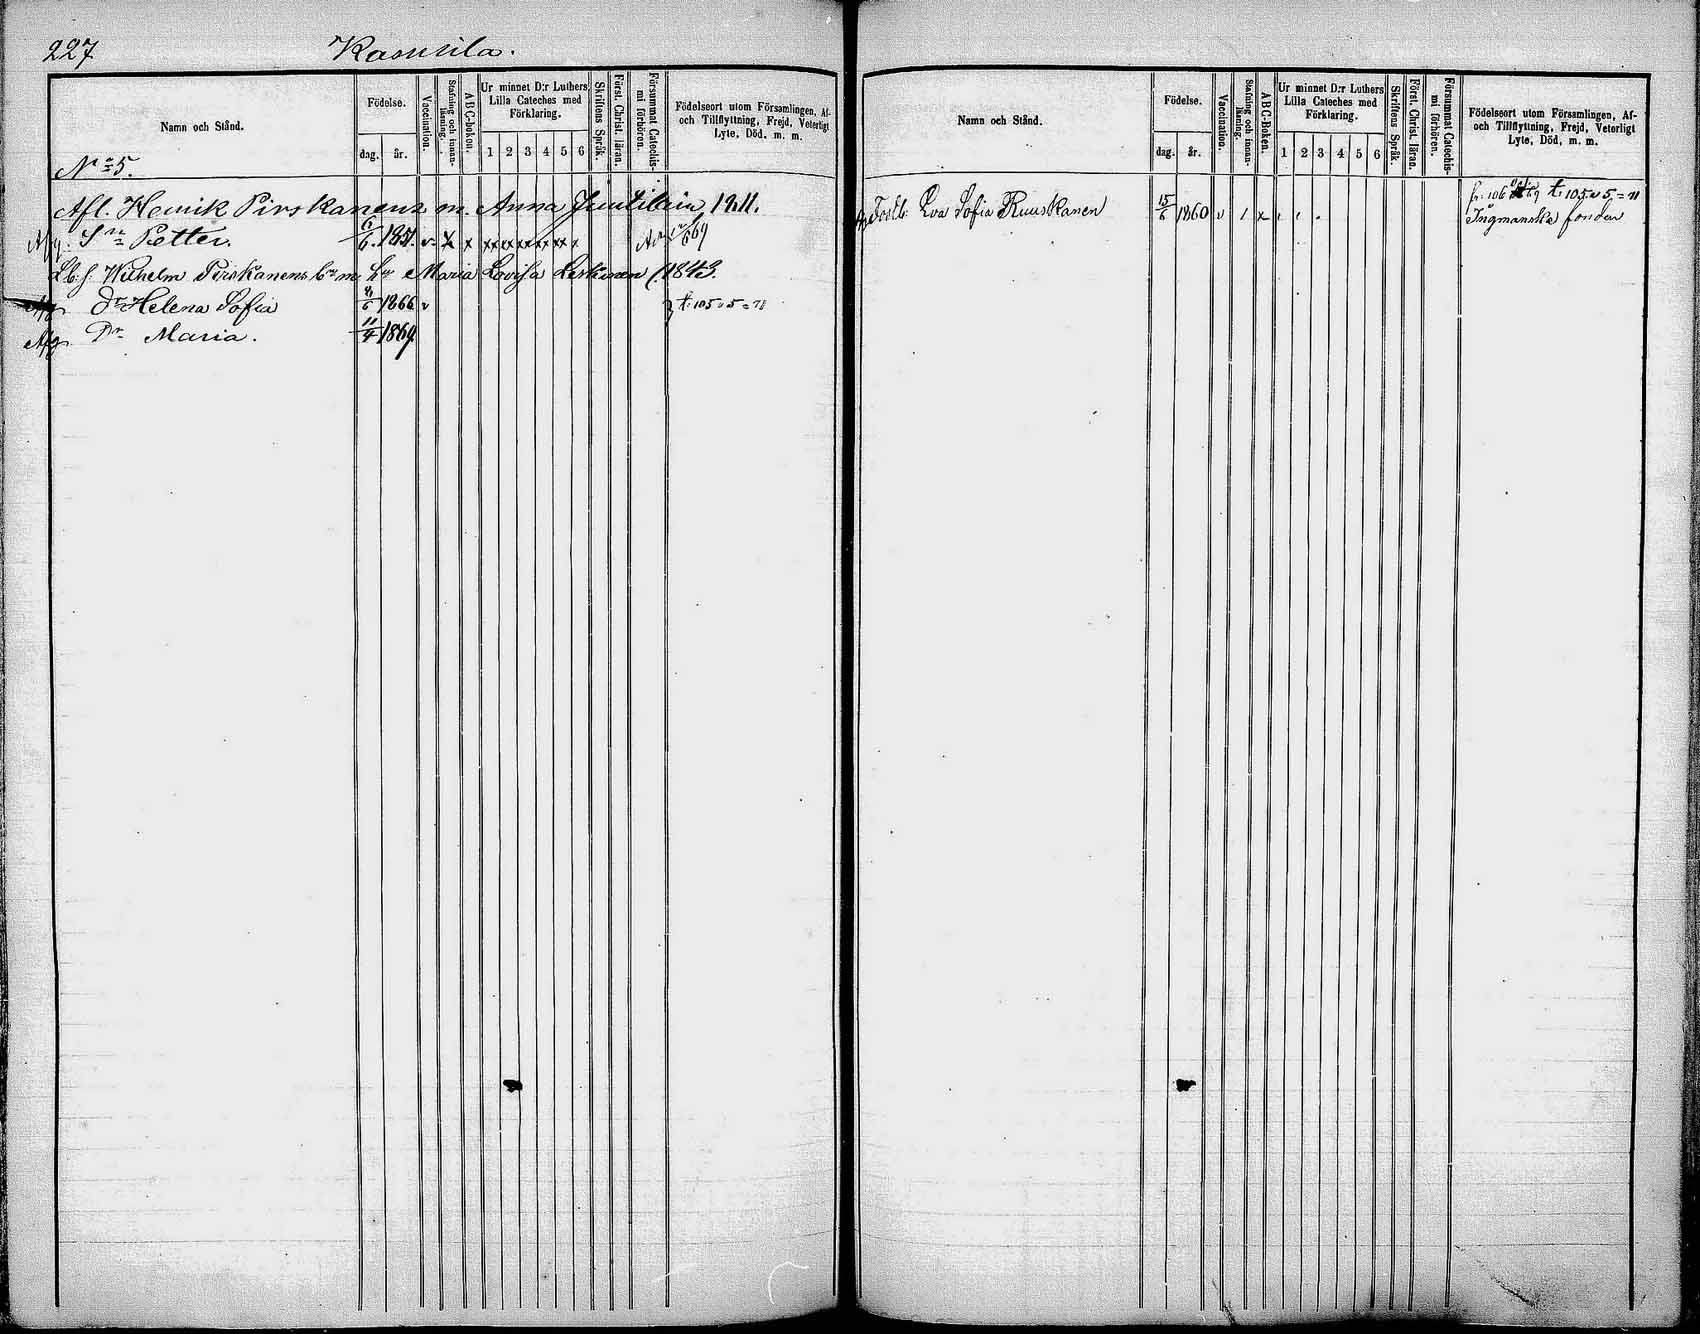 227 Kasurila.
Namn och Stånd.
Födelse.
dag. år.
Vaccination.
Stafning och innan-läsning.
ABC-boken.
Ur minnet D:r Luthers
Lilla Cateches med
Förklaring.
1 2 3 4 5 6
Skriftens Språk.
Först. Christ. läran.
Försummat Catechis-
mi förhören.
Födelseort utom Församlingen, Af-
och Tillflyttning, Frejd, Veterligt
Lyte, Död. m. m.
No 5.
Afl. Henrik Pirskanens m. Anna Juutilain, 1811.
Afg. Sn Petter. 6/6. 1851. v x x xx xx xx xx x x 69
Wilhelm Pirskanens Maria Lovisa Leskinen (1843.
Afg. Dr Helena Sofia 1866 v t. 105 u 5 = 71
Afg. Dr Maria. 11/4 1869.
Namn och Stånd.
Födelse.
dag. år.
Vaccination.
Stafning och innan-läsning.
ABC-Boken.
Ur minnet D:r Luthers
Lilla Cateches med
Förklaring.
1 2 3 4 5 6
Skriftens Språk.
Först. Christ. läran.
Försummat Catechis-
mi förhören.
Födelseort utom Församlingen, Af-
och Tillflyttning, Frejd, Veterligt
Lyte, Död, m. m.
Eva Sofia Ruuskanen 15/6 1860 v / x fr: 106 69 t. 105 u 5 = 71
Ingmanska fonden